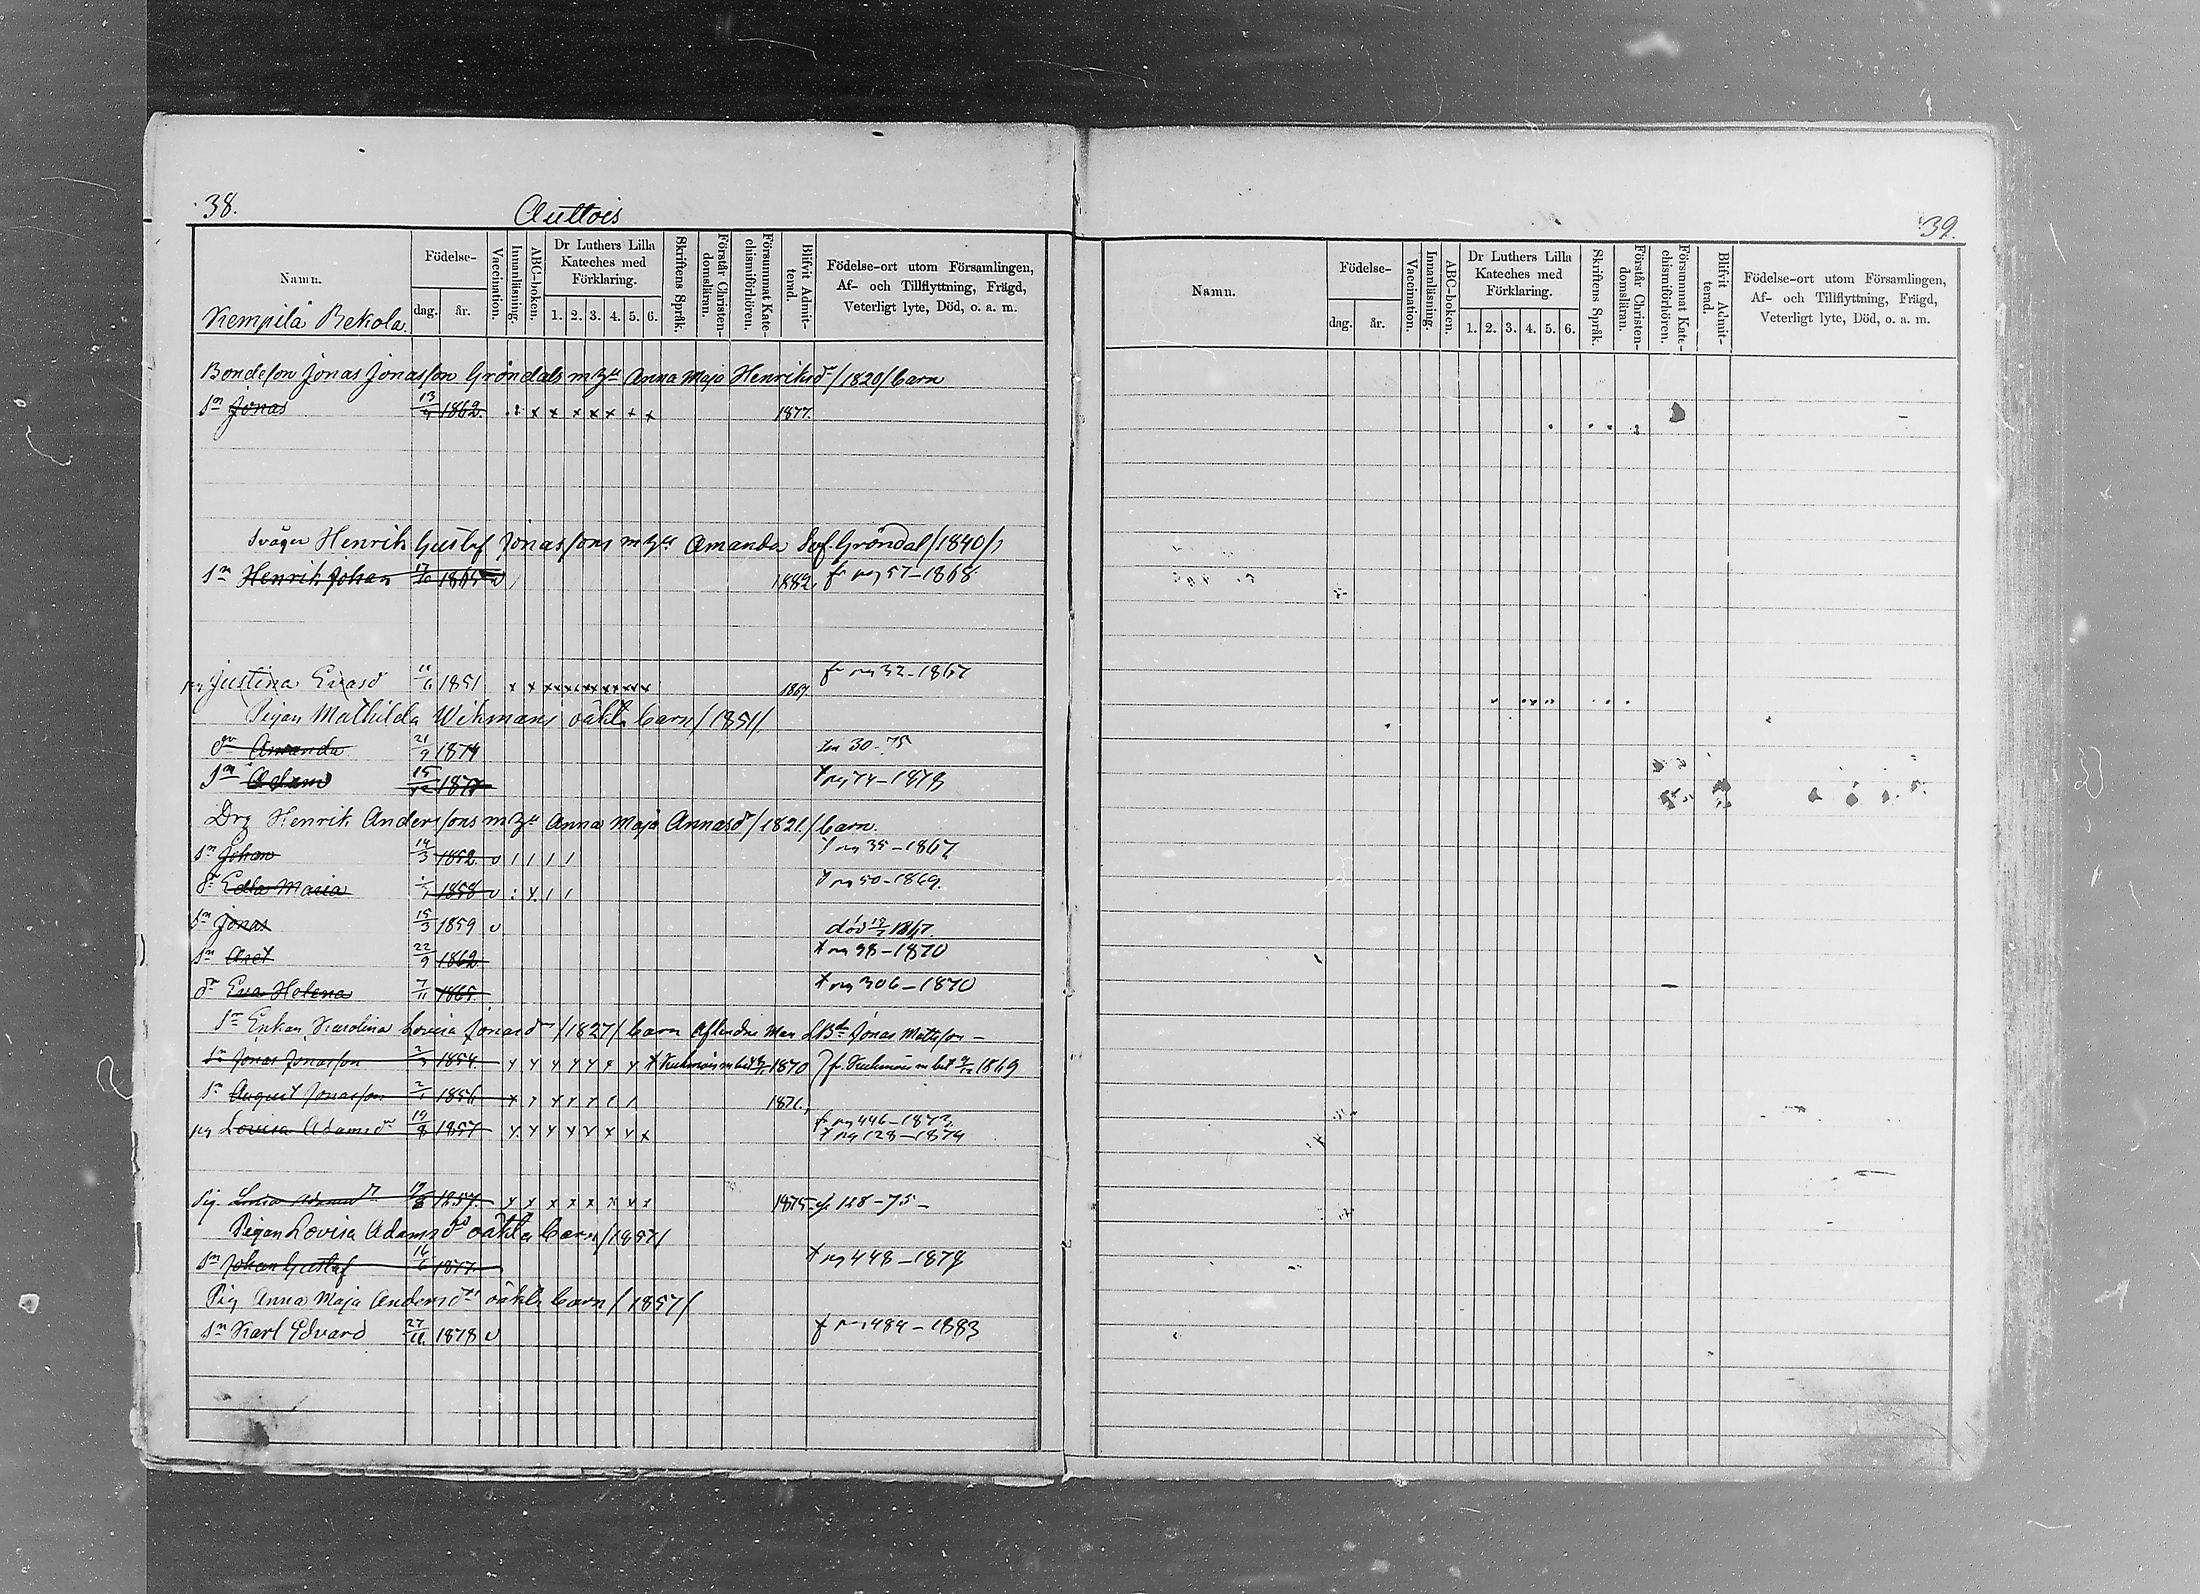 38.
Auttois
Namn.
Födelse-
dag.
år.
Vaccination.
Innanläsning.
ABC-boken.
Dr Luthers Lilla
Kateches med
Förklaring.
1. 2. 3. 4. 5. 6.
Skriftens Språk.
Förstår Christen-
domsläran.
Försummat Kate-
chismiförhören.
Blifvit Admit-
terad.
Födelse-ort utom Församlingen,
Af- och Tillflyttning, Frägd,
Veterligt lyte, Död, o. a. m.
Kempilä Rekola
Bondeson Jonas Jonasson Gröndals m hu Anna Maja Henriksdr /1820/ barn
Sn Jonas 13 1862. 1877.
Svåger Henrik Gustaf Jonassons m hu Amanda Sof. Gröndal /1840/
Sn Henrik Johan 17 1865 v 1882. fr pag 57-1868
pig Justina Evasdr 11/6 1851 x x x x x x x x 1867. fr pag 32-1867
Pigan Mathilda Wikmans oäkta barn /1851/
dr Amanda 21/9 1874 30-75
Sn Adam 15 1877 pag 74-1878
Drg Henrik Anderssons m hu Anna Maja Annasdr /1821/ barn.
Sn Johan 14/3 1852 v / / / / pag 35-1867
dr Edla Maria 1858 v pag 50-1869.
Sn Jonas 15/3 1859 v död 1867.
Sn Axel 22/9 1862 pag 98-1870
dr Eva Helena 7/11 1865 pag 306-1870
Enkan Karolina Lovisa Jonasdr /1827/ barn aflendne Man Jonas Mattsson
Sn Jonas Jonasson 1854. 1870 1869
Sn August Jonasson 1856 1871.
pig Lovisa Adamsdr 19/8 1857 fr pag 446-1873
pag 128-1874
Pig. Adamsdr 19/8 1857. x x x x x x x x 1875 128-75
Pigan Lovisa Adamsdr oäkta barn /1857/
Sn Johan Gustaf 16/6 1877 pag 448-1878
Pig Anna Maja Andersdrs oäkta barn /1857/
Sn Karl Edvard 27/11 1878 v 484-1883
39.
Namn.
Födelse-
dag.
år.
Vaccination.
Innanläsning.
ABC-boken.
Dr Luthers Lilla
Kateches med
Förklaring.
1. 2. 3. 4. 5. 6.
Skriftens Språk.
Förstår Christen-
domsläran.
Försummat Kate-
chismiförhören.
Blifvit Admit-
terad.
Födelse-ort utom Församlingen,
Af- och Tillflyttning, Frägd,
Veterligt lyte, Död, o. a. m.